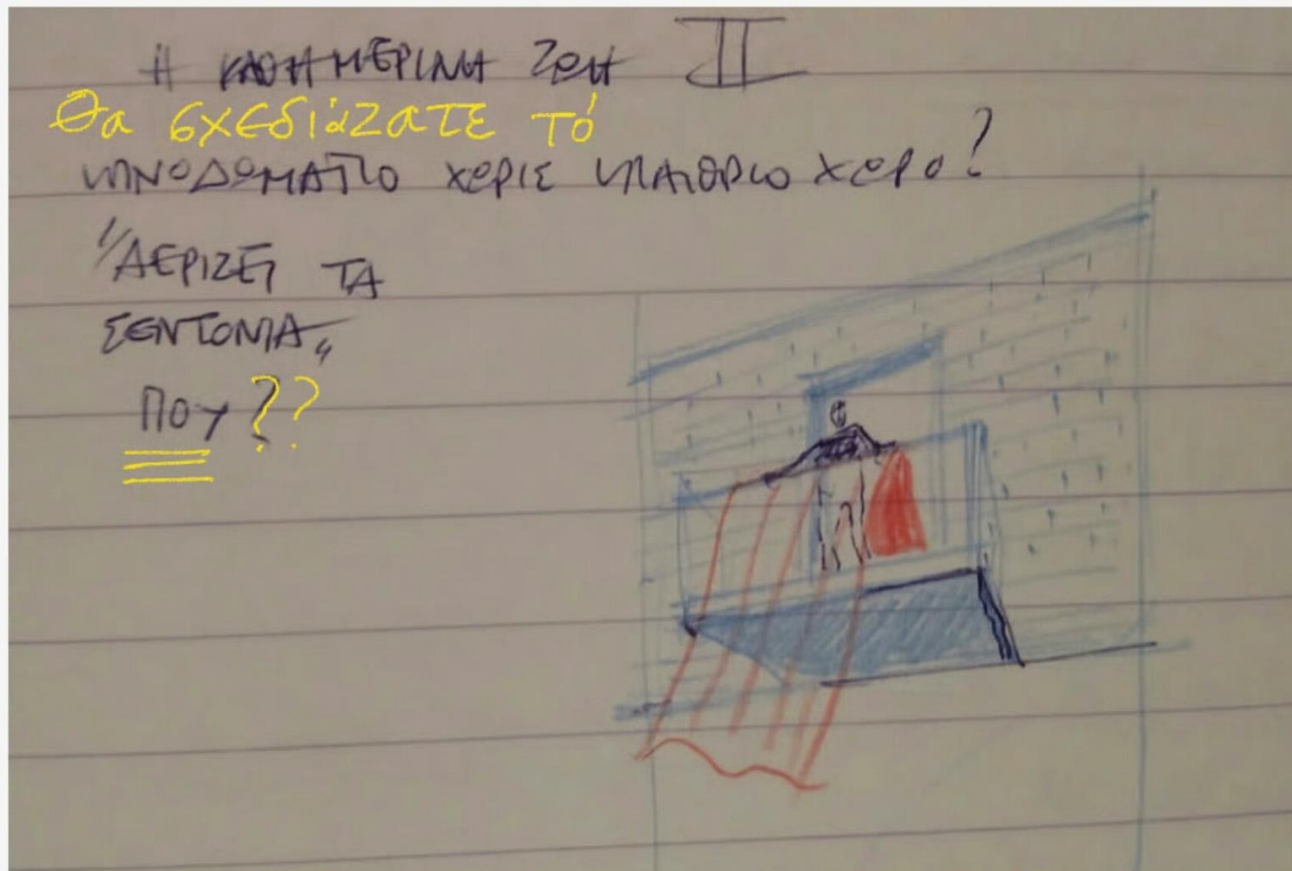 Η ΚΑΘΗΜΕΡΙΝΗ ΖΩΗ II
Θα σχεδιάζατε τό
ΥΠΝΟΔΩΜΑΤΙΟ ΧΩΡΙΣ ΥΠΑΙΘΡΙΟ ΧΩΡΟ?
"ΑΕΡΙΖΕΙ ΤΑ
ΣΕΝΤΟΝΙΑ"
ΠΟΥ ??